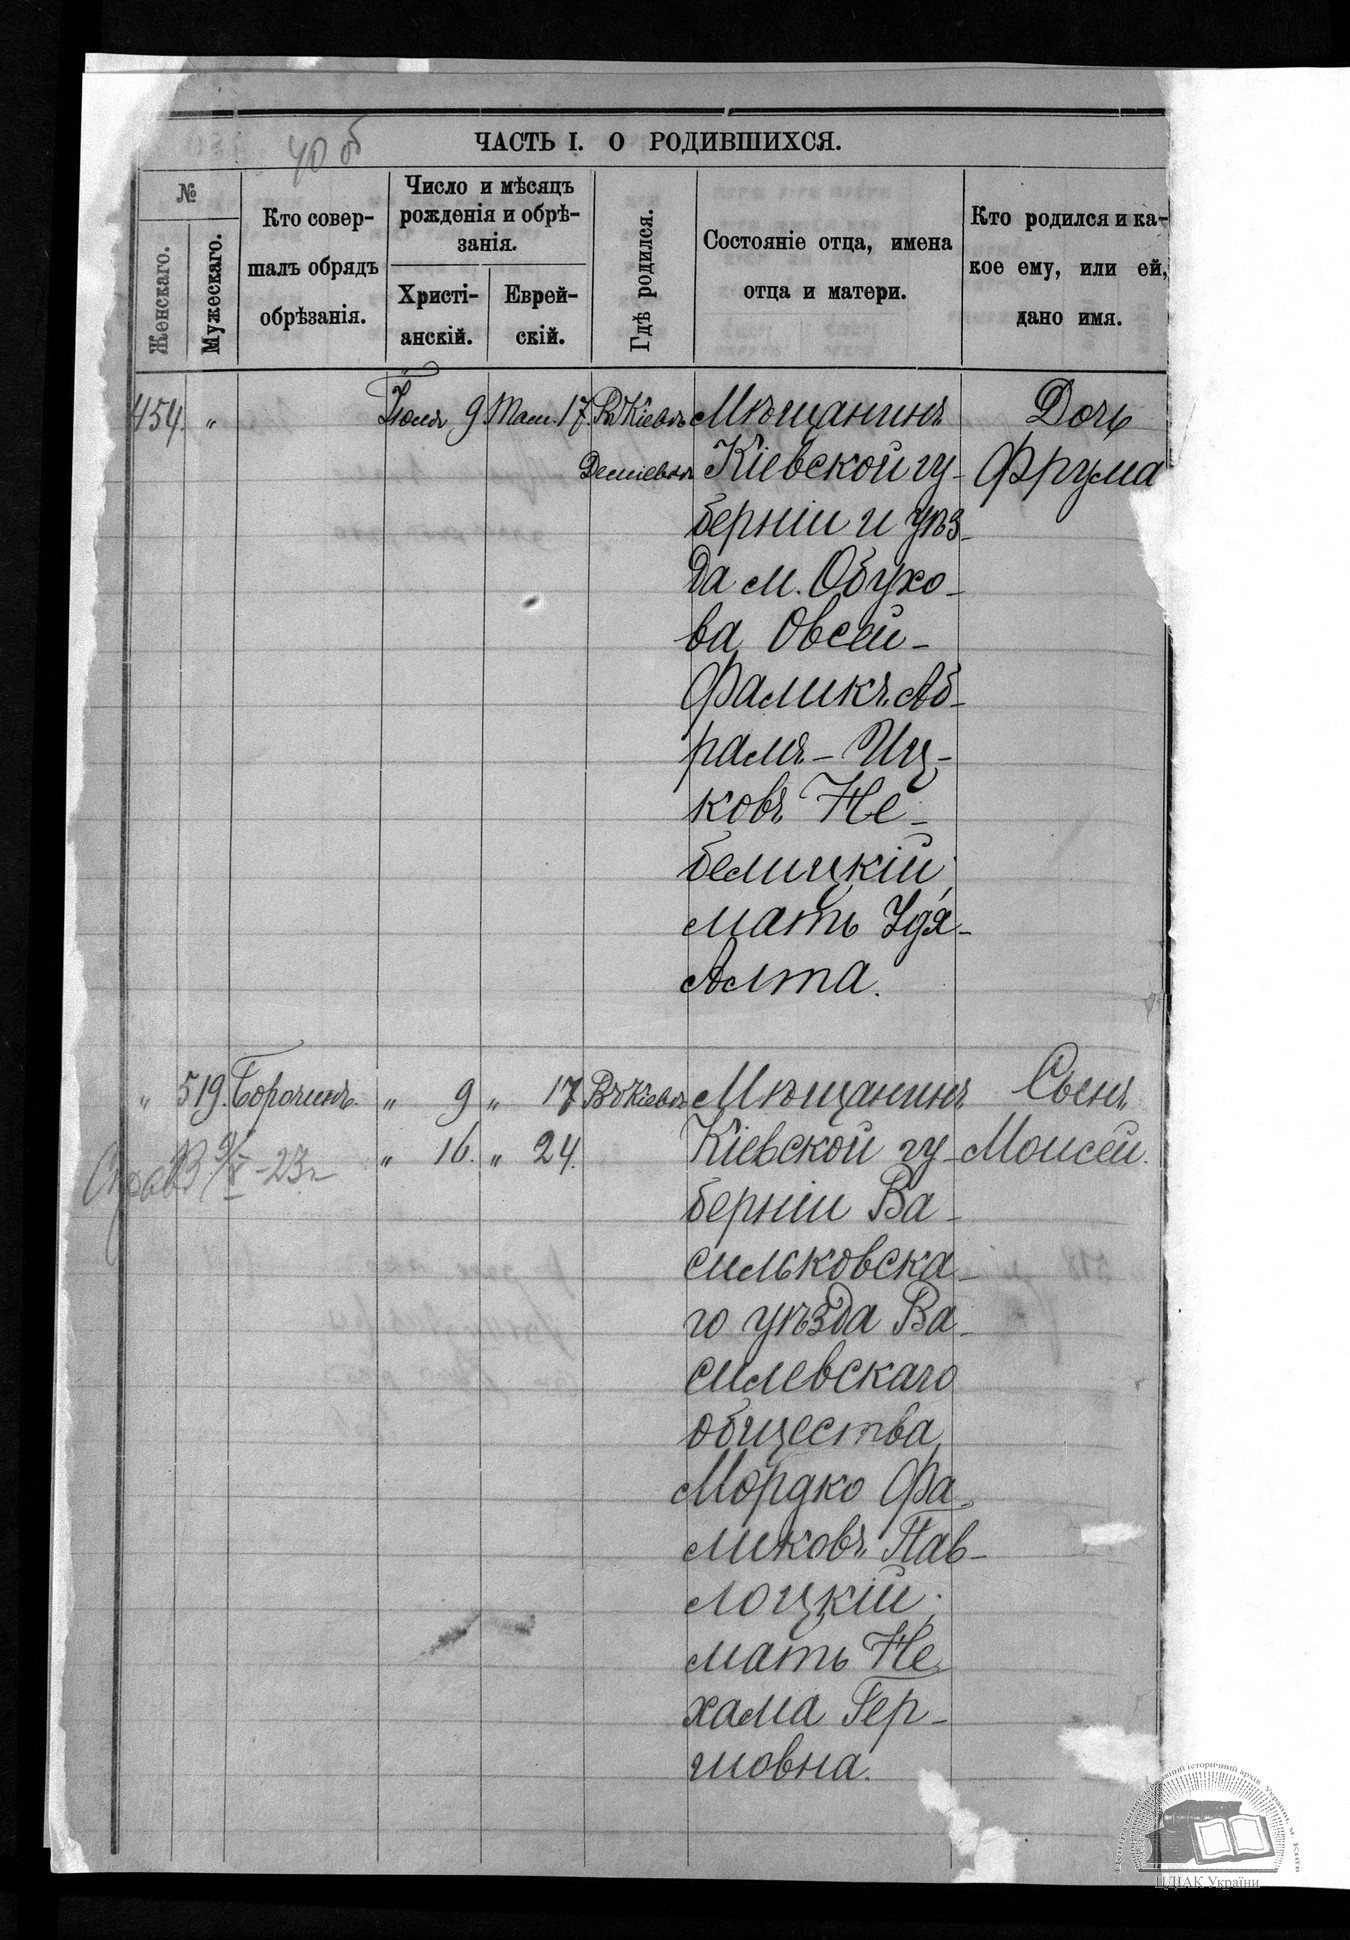 40 об
ЧАСТЬ I. О РОДИВШИХСЯ.
№
Женскаго.
Мужескаго.
Кто совер-
шалъ обрядъ
обрѣзанія.
Число и мѣсяцъ
рожденія и обрѣ-
занія.
Христі-
анскій.
Еврей-
скій.
Гдѣ родился.
Состояніе отца, имена
отца и матери.
Кто родился и ка-
кое ему, или ей,
дано имя.
454. " Іюля 9. Там. 17. Въ Кіевѣ Мѣщанинъ Дочь
Деміевкѣ Кіевской гу- Фрума
берніи и уѣз-
да м. Обухо-
ва Овсей-
Фаликъ Аб-
рамъ-Иц-
ковъ Не-
белицкій;
мать Удя-
Алта.
" 519. Борочинъ. " 9 " 17 Въ Кіевѣ Мѣщанинъ Сынъ
" 16. " 24. Кіевской гу- Моисей.
9/V-23г
берніи Ва-
сильковска-
го уѣзда Ва-
силевскаго
общества
Мордко Фа-
ликовъ Пав-
лоцкій;
мать Не-
хама Гер-
шовна.
ЦДІАК України